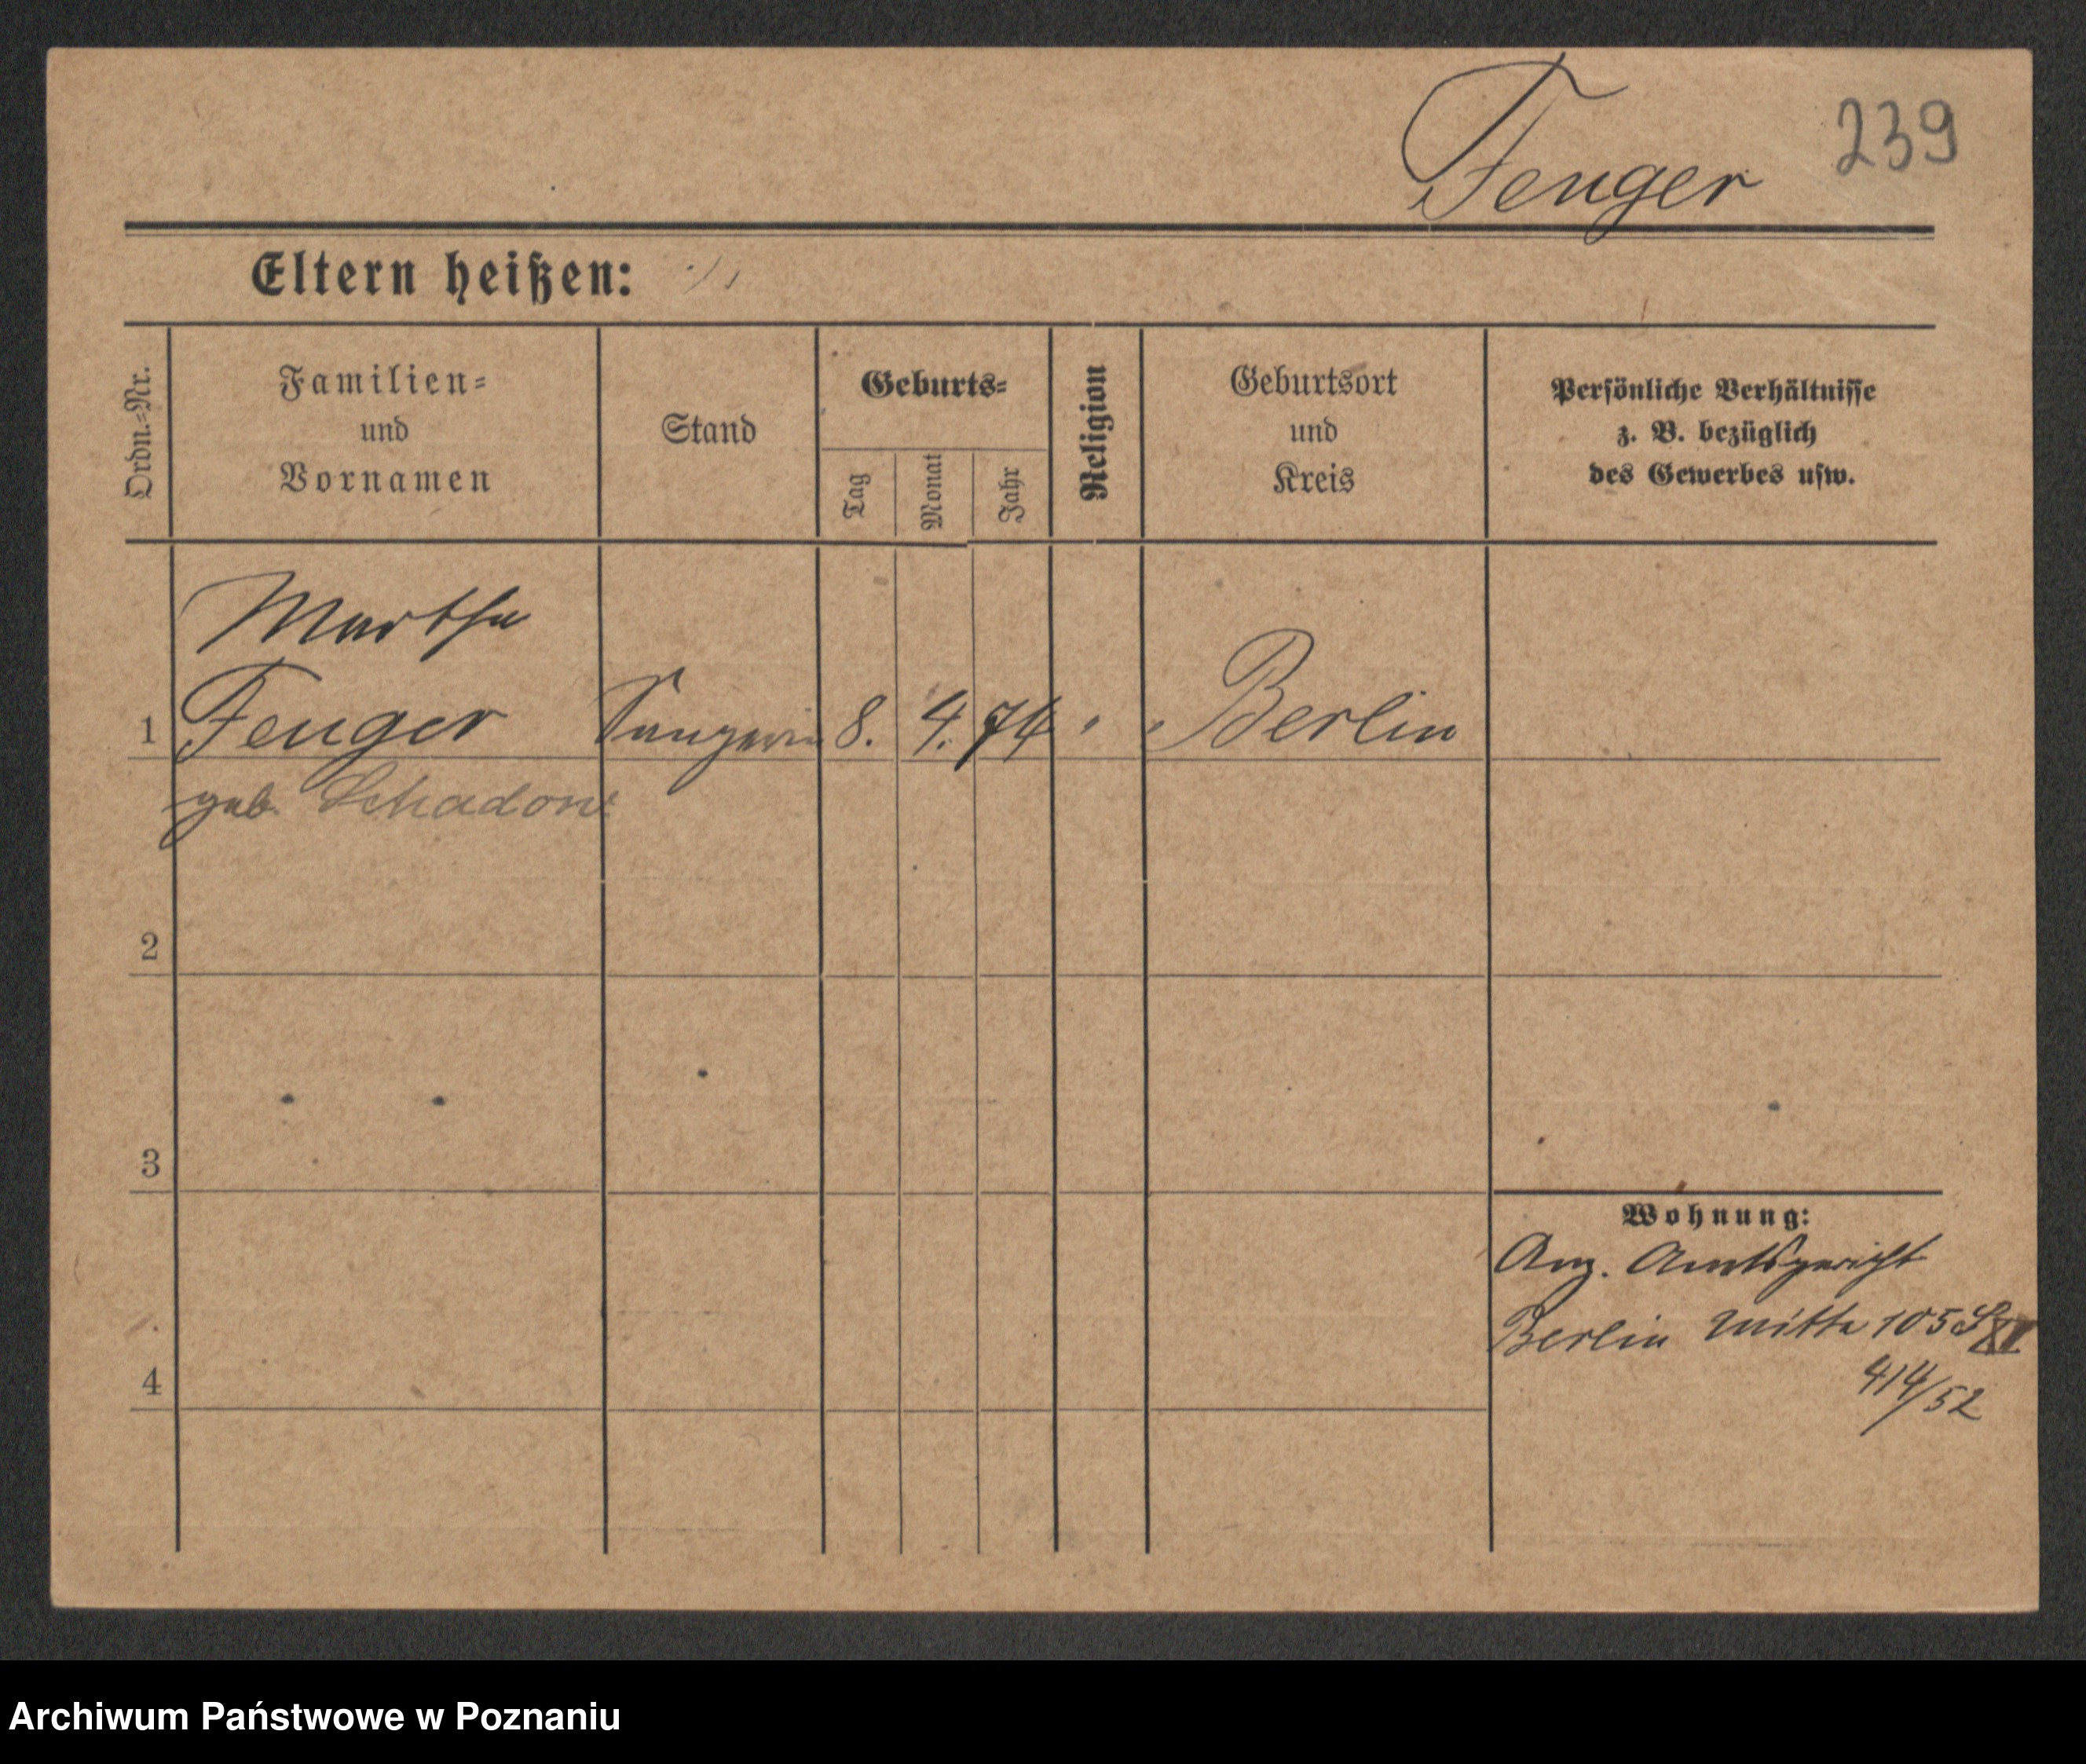 Fenger 239
Eltern heißen: ·/,
Ordn.=Nr.
Familien=
und
Vornamen
Stand
Geburts=
Tag
Monat
Jahr
Religion
Geburtsort
und
Kreis
Persönliche Verhältnisse
z. B. bezüglich
des Gewerbes usw.
Martha
1 Fenger Sängerin 8. 4. 74 " Berlin
geb. Schadow
2
3
4
Wohnung:
Anz. Amtsgericht
Berlin Mitte 105
414/52
Archiwum Państwowe w Poznaniu